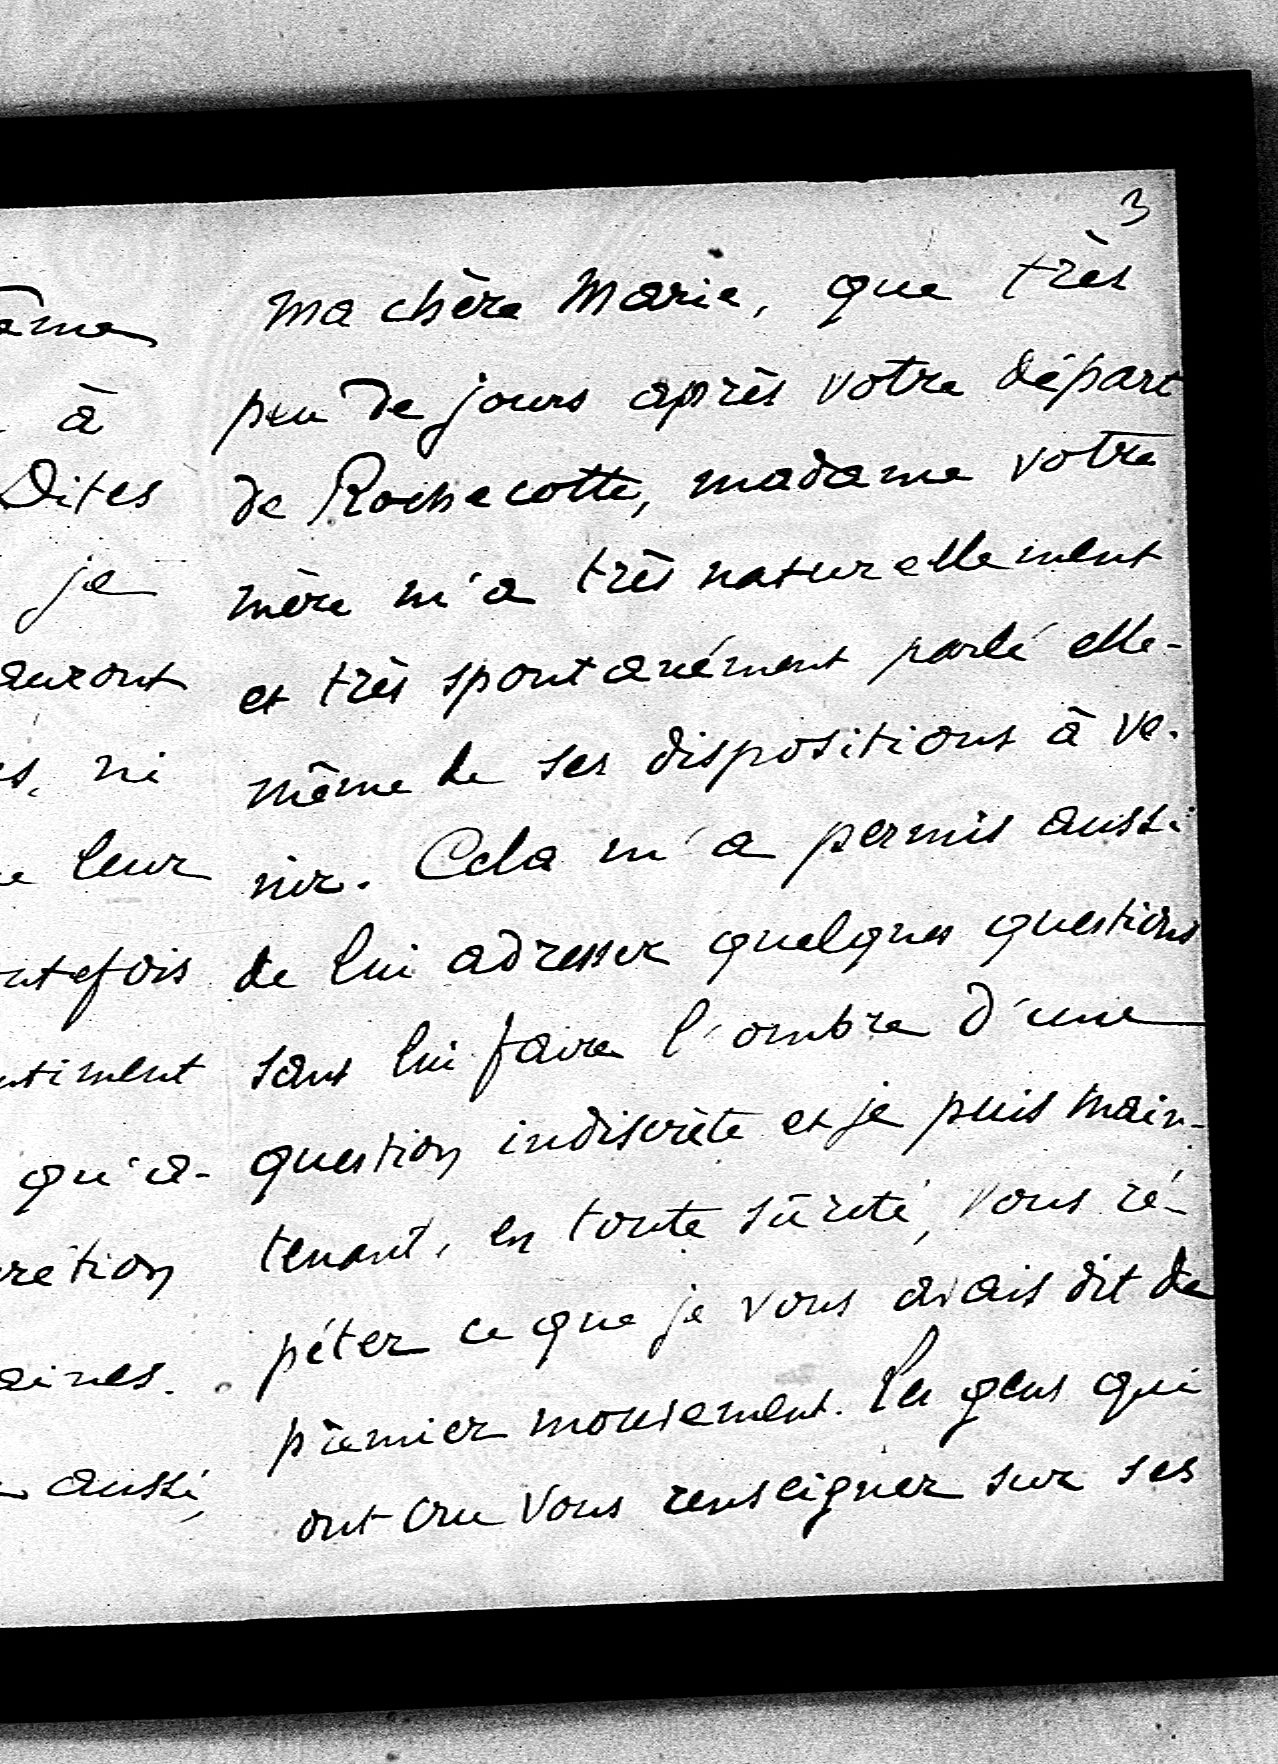 3
ma chère Marie, que très
peu de jours après votre départ
de Rochecotte, madame votre
mère m'a très naturellement
et très spontanément parlé elle-
même de ses dispositions à ve-
nir. Cela m'a permis aussi
de lui adresser quelques questions
sans lui faire l'ombre d'une
question indiscrète et je puis main-
tenant, en toute sûreté, vous ré-
péter ce que je vous avais dit de
premier mouvement. Les gens qui
ont cru vous renseigner sur ses
à
Dites
je
auront
ni
leur
qu'a-
aussi,